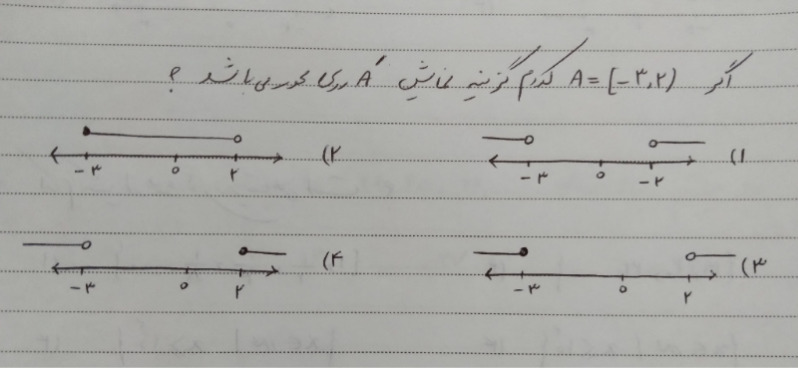 اگر A = [-۳,۲) کدام گزینه نمایش A′ روی محور می باشد ؟
۱)
-۳ ۰ -۲
۲)
-۳ ۰ ۲
۳)
-۳ ۰ ۲
۴)
-۳ ۰ ۲